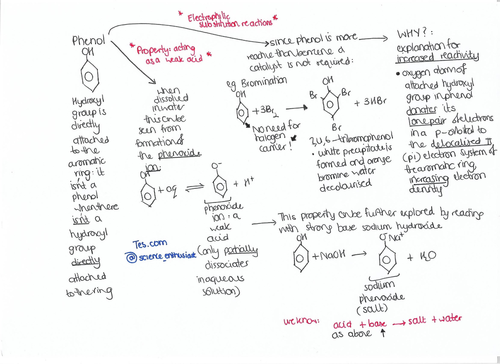 Phenol
OH
Hydroxyl
group is
directly
attached
to the
aromatic
ring: it
isn't a
phenol
when there
isn't a
hydroxyl
group
directly
attached
to the ring
* Electrophilic
substitution reactions *
* Property: acting
as a weak acid *
when
dissolved
in water
this can be
seen from
formation of
the phenoxide
ion:
OH
+ aq
O⁻
+ H⁺
phenoxide
ion: a
weak
acid
(only partially
dissociates
in aqueous
solution)
Tes.com
@science_enthusiast
since phenol is more
reactive than benzene a
catalyst is not required:
eg Bromination
OH
+3Br₂
OH
Br
Br
Br
+ 3HBr
No need for
halogen
carrier!
2,4,6-tribromophenol
• white precipitate is
formed and orange
bromine water
decolourised
WHY?:
explanation for
increased reactivity
• oxygen atom of
attached hydroxyl
group in phenol
donates its
lone pair of electrons
in a p-orbital to
the delocalised π
(pi) electron system of
the aromatic ring,
increasing electron
density
This property can be further explored by reacting
with strong base sodium hydroxide
OH
+ NaOH
O⁻Na⁺
+ H₂O
sodium
phenoxide
(salt)
we know:
acid + base → salt + water
as above ↑